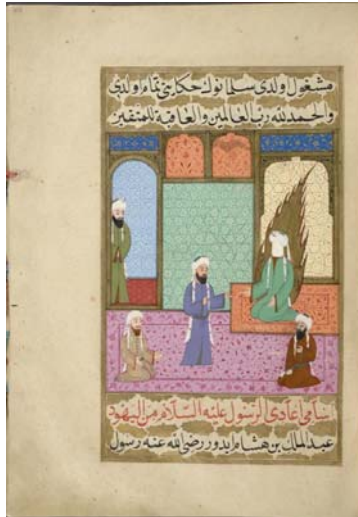 مشغول ولدى سلمانوك حكايتى تمام اولدى
والحمد لله رب العالمين والعاقبة للمتقين
سامى اعادى الرسول عليه السلام من اليهود
عبد الملك بن هشام ايدور رضى الله عنه رسول